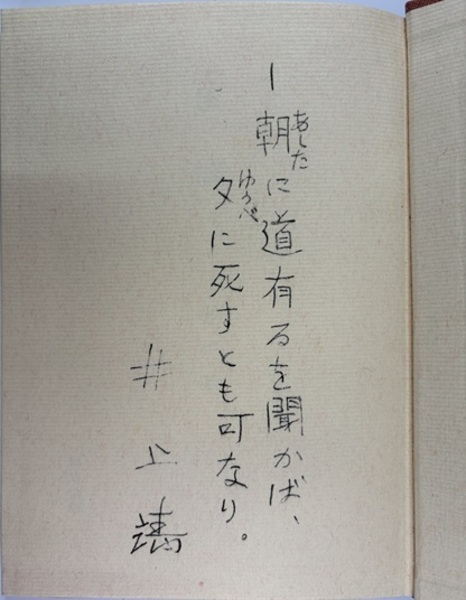 ― 朝に道有るを聞かば、
あした
夕に死すとも可なり。
ゆうべ
井上靖